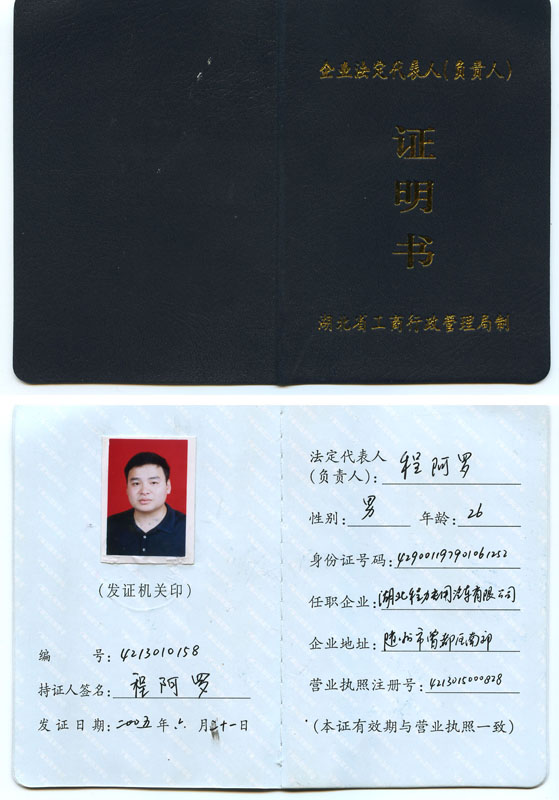 企业法定代表人(负责人)
证
明
书
湖北省工商行政管理局制
(发证机关印)
编 号: 4213010158
持证人签名: 程阿罗
发证日期: 二00五年六月二十一日
法定代表人
(负责人): 程阿罗
性别: 男 年龄: 26
身份证号码: 429001197901061252
任职企业: 湖北程力专用汽车有限公司
企业地址: 随州市曾都区南郊
营业执照注册号: 4213015000828
(本证有效期与营业执照一致)